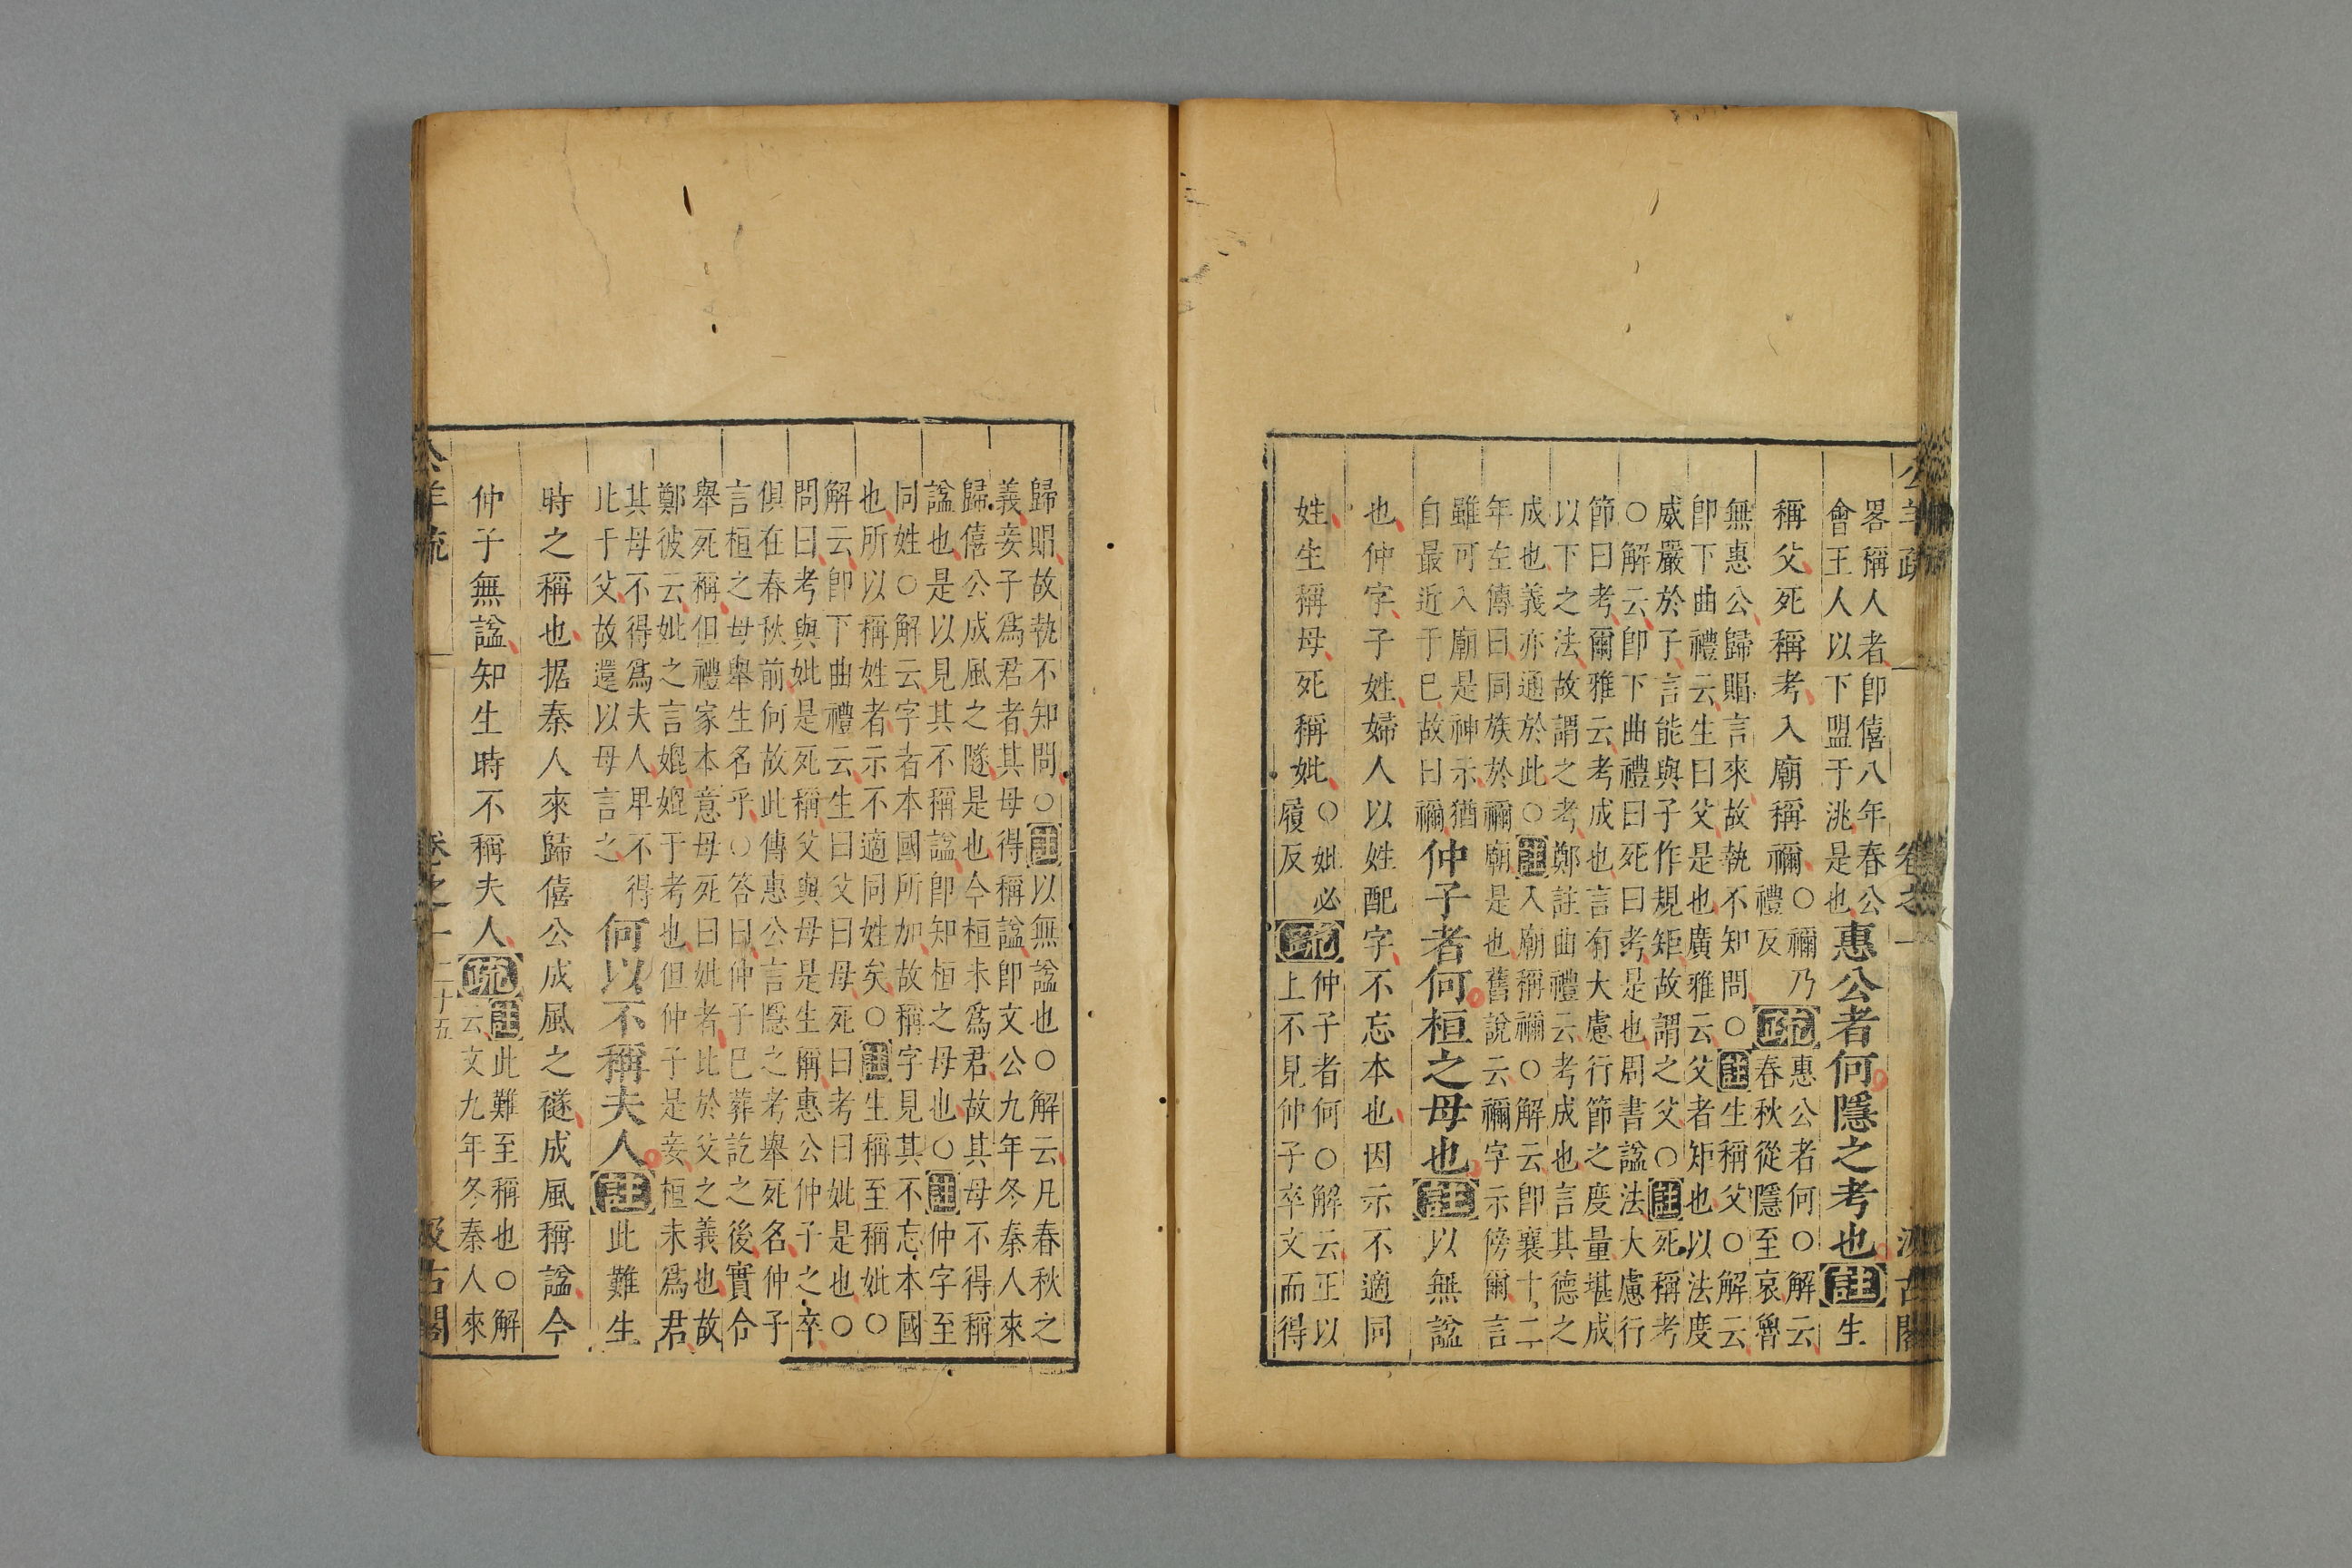 公羊疏 卷之一 汲古閣
畧稱人者卽僖八年春公
會王人以下盟于洮是也
惠公者何隱之考也註生
稱父死稱考入廟稱禰
○禰乃
禮反
疏
惠公者何○解云
春秋從隱至哀魯
無惠公歸賵言來故執不知問○註生稱父○解云
卽下曲禮云生曰父是也廣雅云父者矩也以法度
威嚴於子言能與子作規矩故謂之父○註死稱考
○解云卽下曲禮曰死曰考是也周書諡法大慮行
節曰考爾雅云考成也言有大慮行節之度量堪成
以下之法故謂之考鄭註曲禮云考成也言其德之
成也義亦通於此○註入廟稱禰○解云卽襄十二
年左傳曰同族於禰廟是也舊說云禰字示傍爾言
雖可入廟是神示猶
自最近于巳故曰禰
仲子者何桓之母也註以無諡
也仲字子姓婦人以姓配字不忘本也因示不適同
姓生稱母死稱妣
○妣必
履反
疏
仲子者何○解云正以
上不見仲子卒文而得
歸賵故執不知問○註以無諡也○解云凡春秋之
義妾子爲君者其母得稱諡卽文公九年冬秦人來
歸僖公成風之隧是也今桓未爲君故其母不得稱
諡也是以見其不稱諡卽知桓之母也○註仲字至
同姓○解云字者本國所加故稱字見其不忘本國
也所以稱姓者示不適同姓矣○註生稱至稱妣○
解云卽下曲禮云生曰父曰母死曰考曰妣是也○
問曰考與妣是死稱父與母是生稱惠公仲子之卒
俱在春秋前何故此傳惠公言隱之考舉死名仲子
言桓之母舉生名乎○答曰仲子巳葬訖之後實令
舉死稱但禮家本意母死曰妣者比於父之義也故
鄭彼云妣之言媲媲于考也但仲子是妾桓未爲君
其母不得爲夫人卑不得
比于父故還以母言之
何以不稱夫人註此難生
時之稱也据秦人來歸僖公成風之襚成風稱諡今
仲子無諡知生時不稱夫人疏
註此難至稱也○解
云文九年冬秦人來
公羊疏 卷之一 二十五 汲古閣